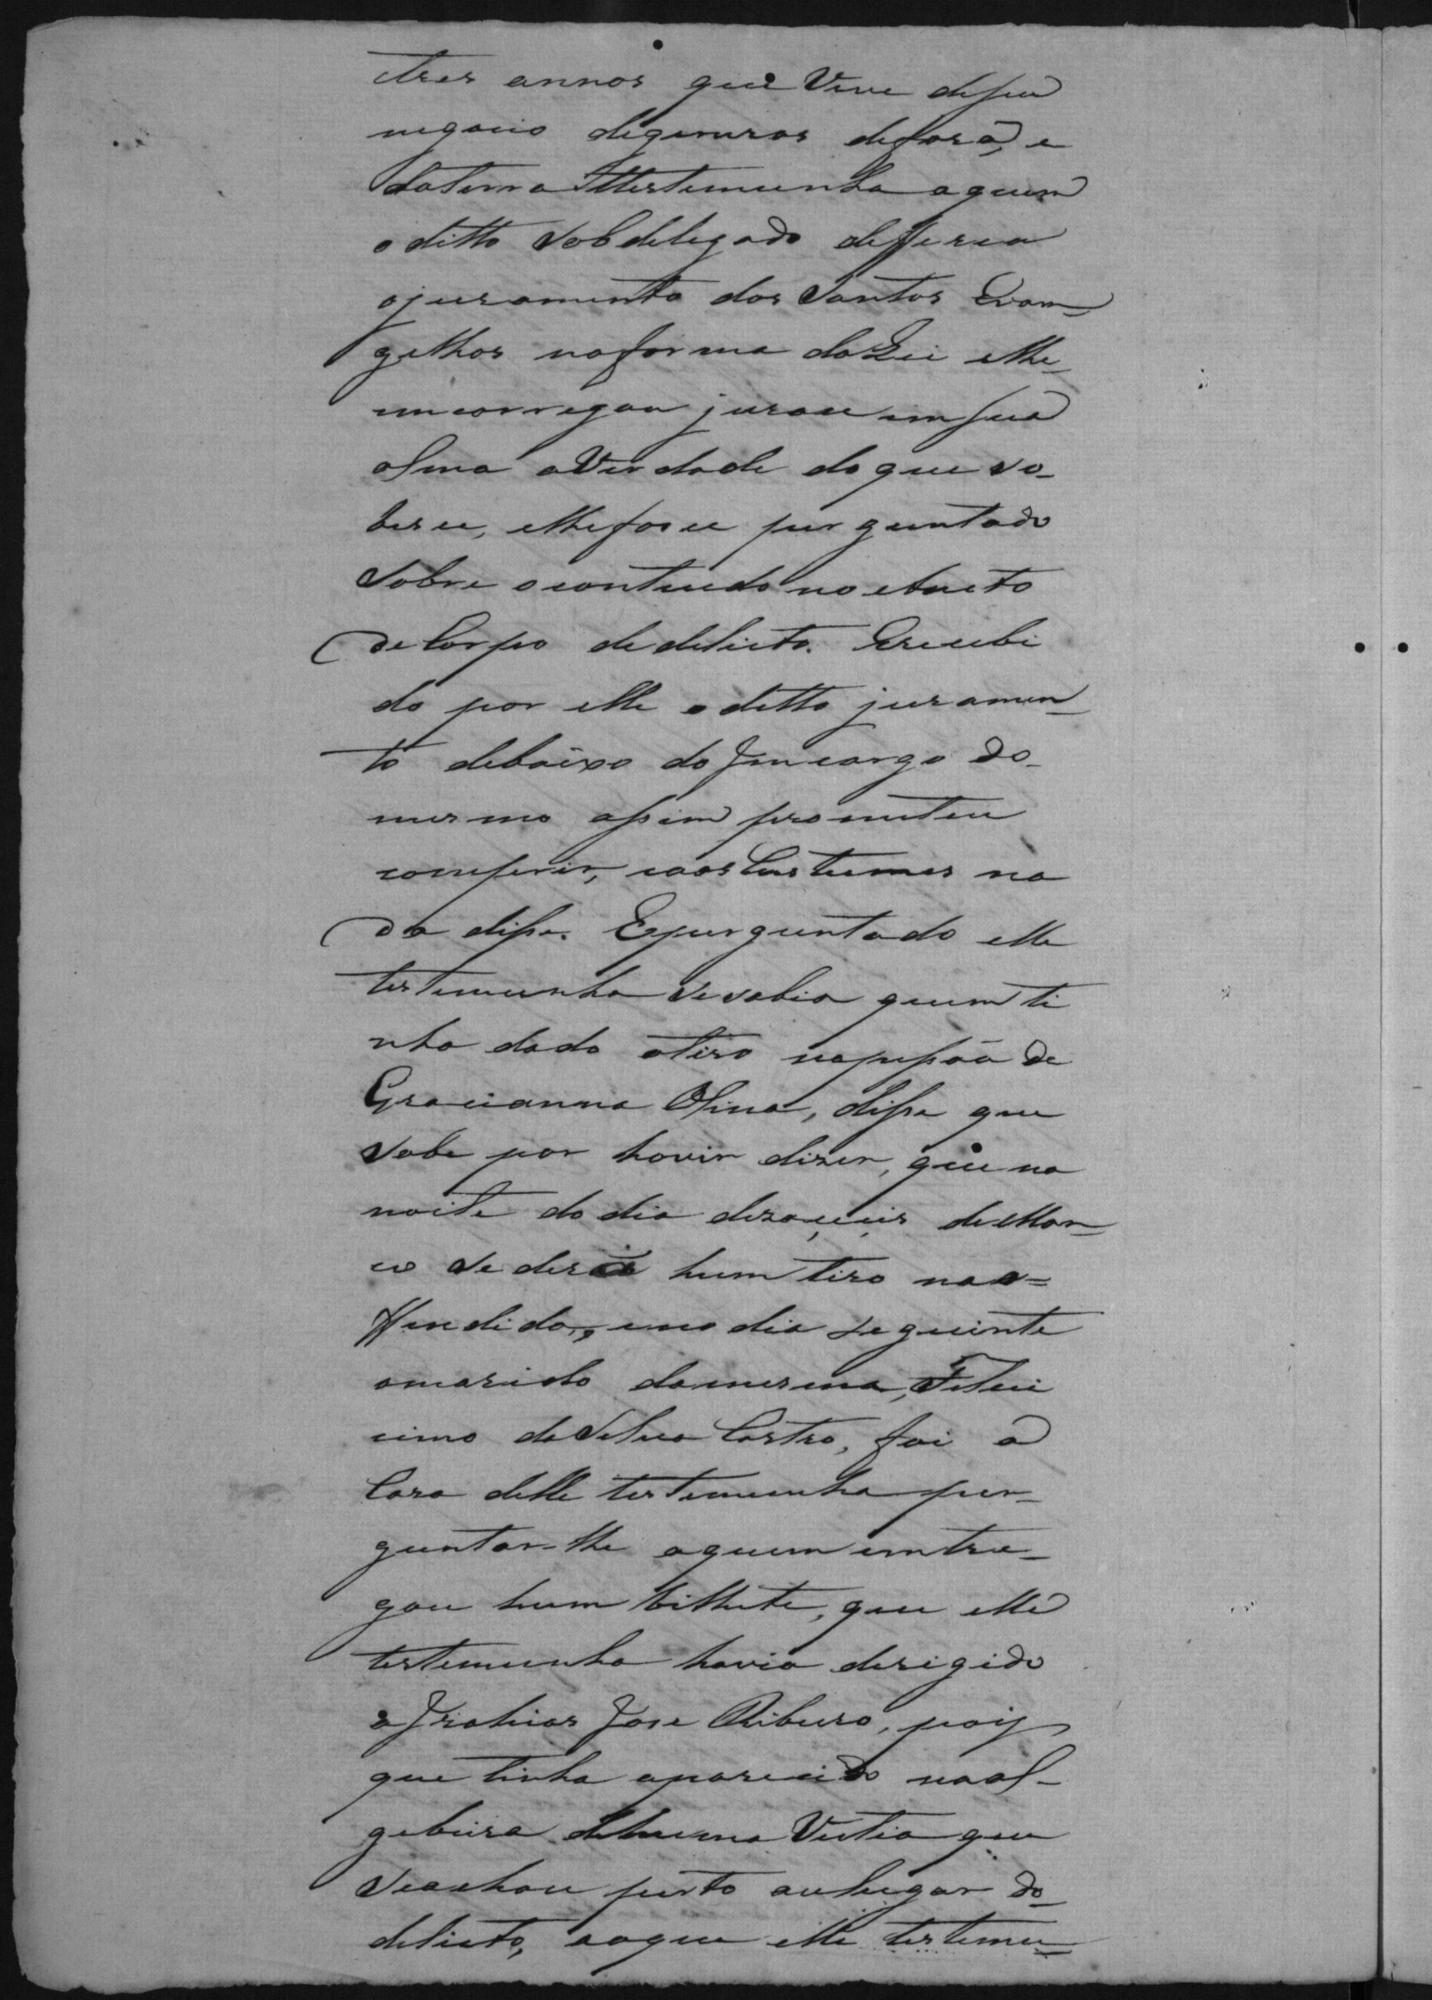 tres annos que Vive deseu
negocio degeneros defora, e
daterra Testemunha aquem
o ditto Sobdelegado defferio
ojuramento dos Santos Evam-
gelhos naforma daLei elhe
emcorregou jurase em sua
alma aVerdade do que so-
bese, elhefose perguntado
Sobre ocontiudo no Aucto
de Corpo de delicto. Ereccebi
do por elle o ditto juramen-
to debaixo do Emcargo do
mesmo assim prometeu
comprir, eaos Custumes na
da disse. Eperguntado elle
testemunha sesabia quem ti
nha dado otiro napessõa de
Gracianna Olina, disse que
Sabe por hovir dizer, que na
noite do dia dezaceis de Mar-
co se dera hum tiro na o=
ffendida, eno dia seguinte
omarido damesma, Felici
cimo da Silva Castro, foi a
Casa delle testemunha per-
guntar-lhe aquem emtre-
gou hum bilhete, que elle
testemunha havia derigido
a José Ribeiro, pois
que tinha aparecido naal-
gebeira dehuma Vestia que
Seachou perto aulugar do
delicto, aoque elle testemu-